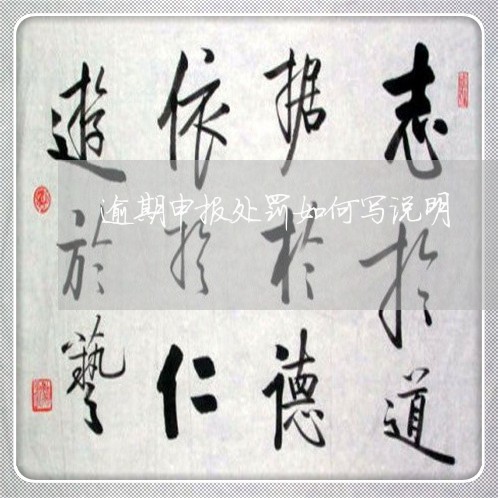 志於道
据於德
依於仁
遊於藝
逾期申报处罚如何写说明